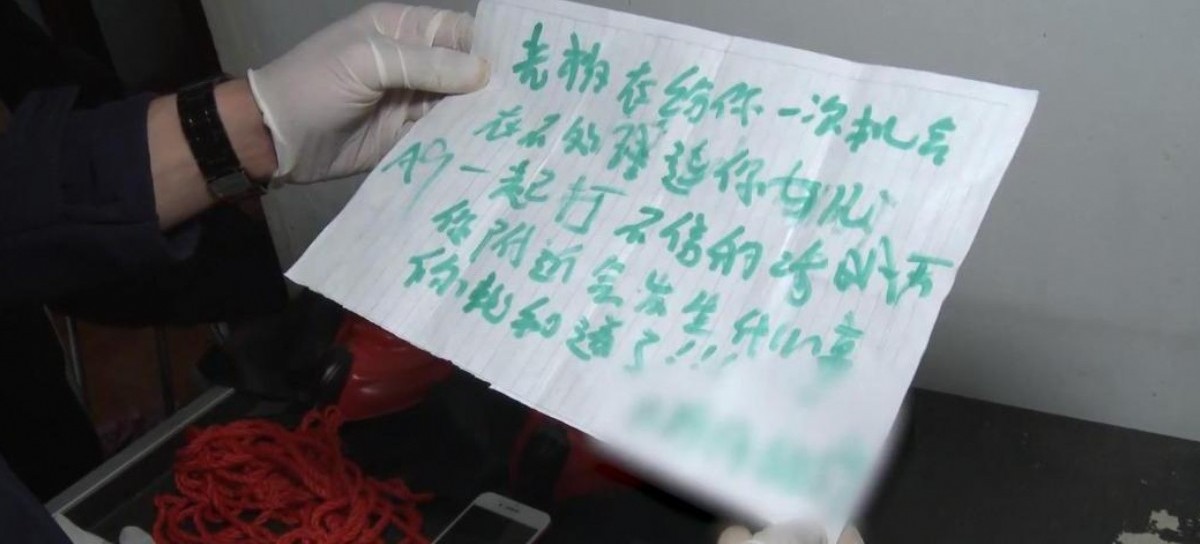 老杨在给你一次机会
在不处理连你女儿
A9一起打 不信的话明天
你附近会发生什么事
你就知道了!!!